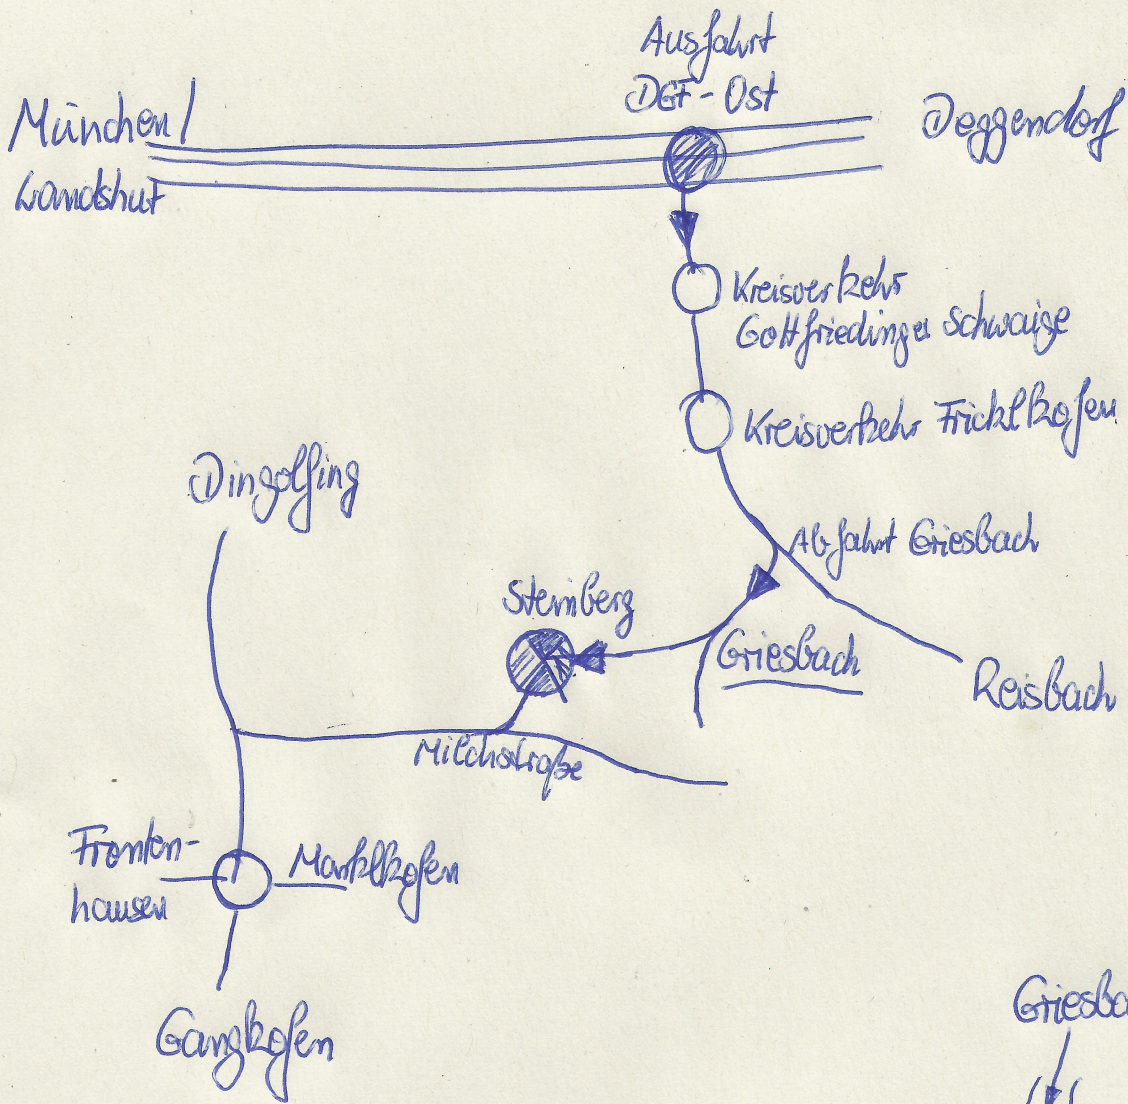 Ausfahrt
DGF-Ost
München/
Landshut
Deggendorf
Kreisverkehr
Gottfriedinger Schwaige
Kreisverkehr Fricklkofen
Dingolfing
Abfahrt Griesbach
Steinberg
Griesbach
Reisbach
Milchstraße
Fronten-
hausen
Marklkofen
Gangkofen
Griesba